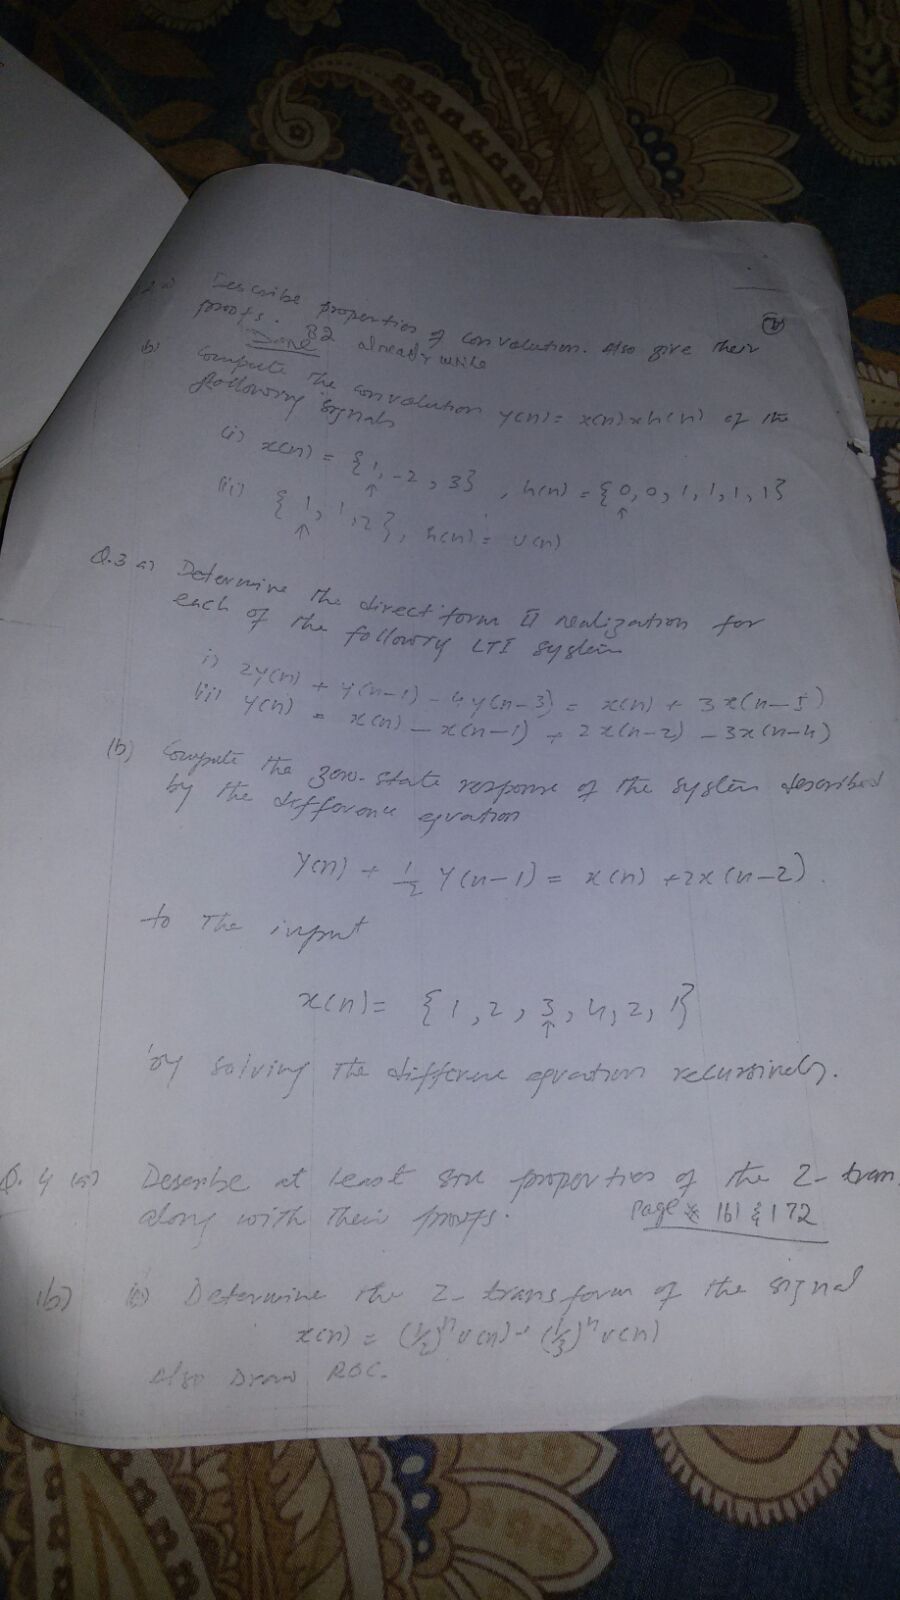 2 a) Describe properties of convolution. Also give their
proofs. Done B2 already write
b) Compute the convolution y(n) = x(n) * h(n) of the
following signals
(i) x(n) = {1, -2, 3}, h(n) = {0, 0, 1, 1, 1, 1}
↑ ↑
(ii) {1, 1, 2}, h(n) = u(n)
↑
Q.3 a) Determine the direct form II realization for
each of the following LTI system
i) 2y(n) + y(n-1) - 4y(n-3) = x(n) + 3x(n-5)
(ii) y(n) = x(n) - x(n-1) + 2x(n-2) - 3x(n-4)
(b) Compute the zero-state response of the system described
by the difference equation
y(n) + 1/2 y(n-1) = x(n) + 2x(n-2).
to the input
x(n) = {1, 2, 3, 4, 2, 1}
↑
by solving the difference equation recursively.
Q.4 (a) Describe at least six properties of the Z-tran
along with their proofs. Page # 161 & 172
(b) Determine the Z-transform of the signal
x(n) = (1/2)^n u(n) (1/3)^n u(n)
Also Draw ROC.